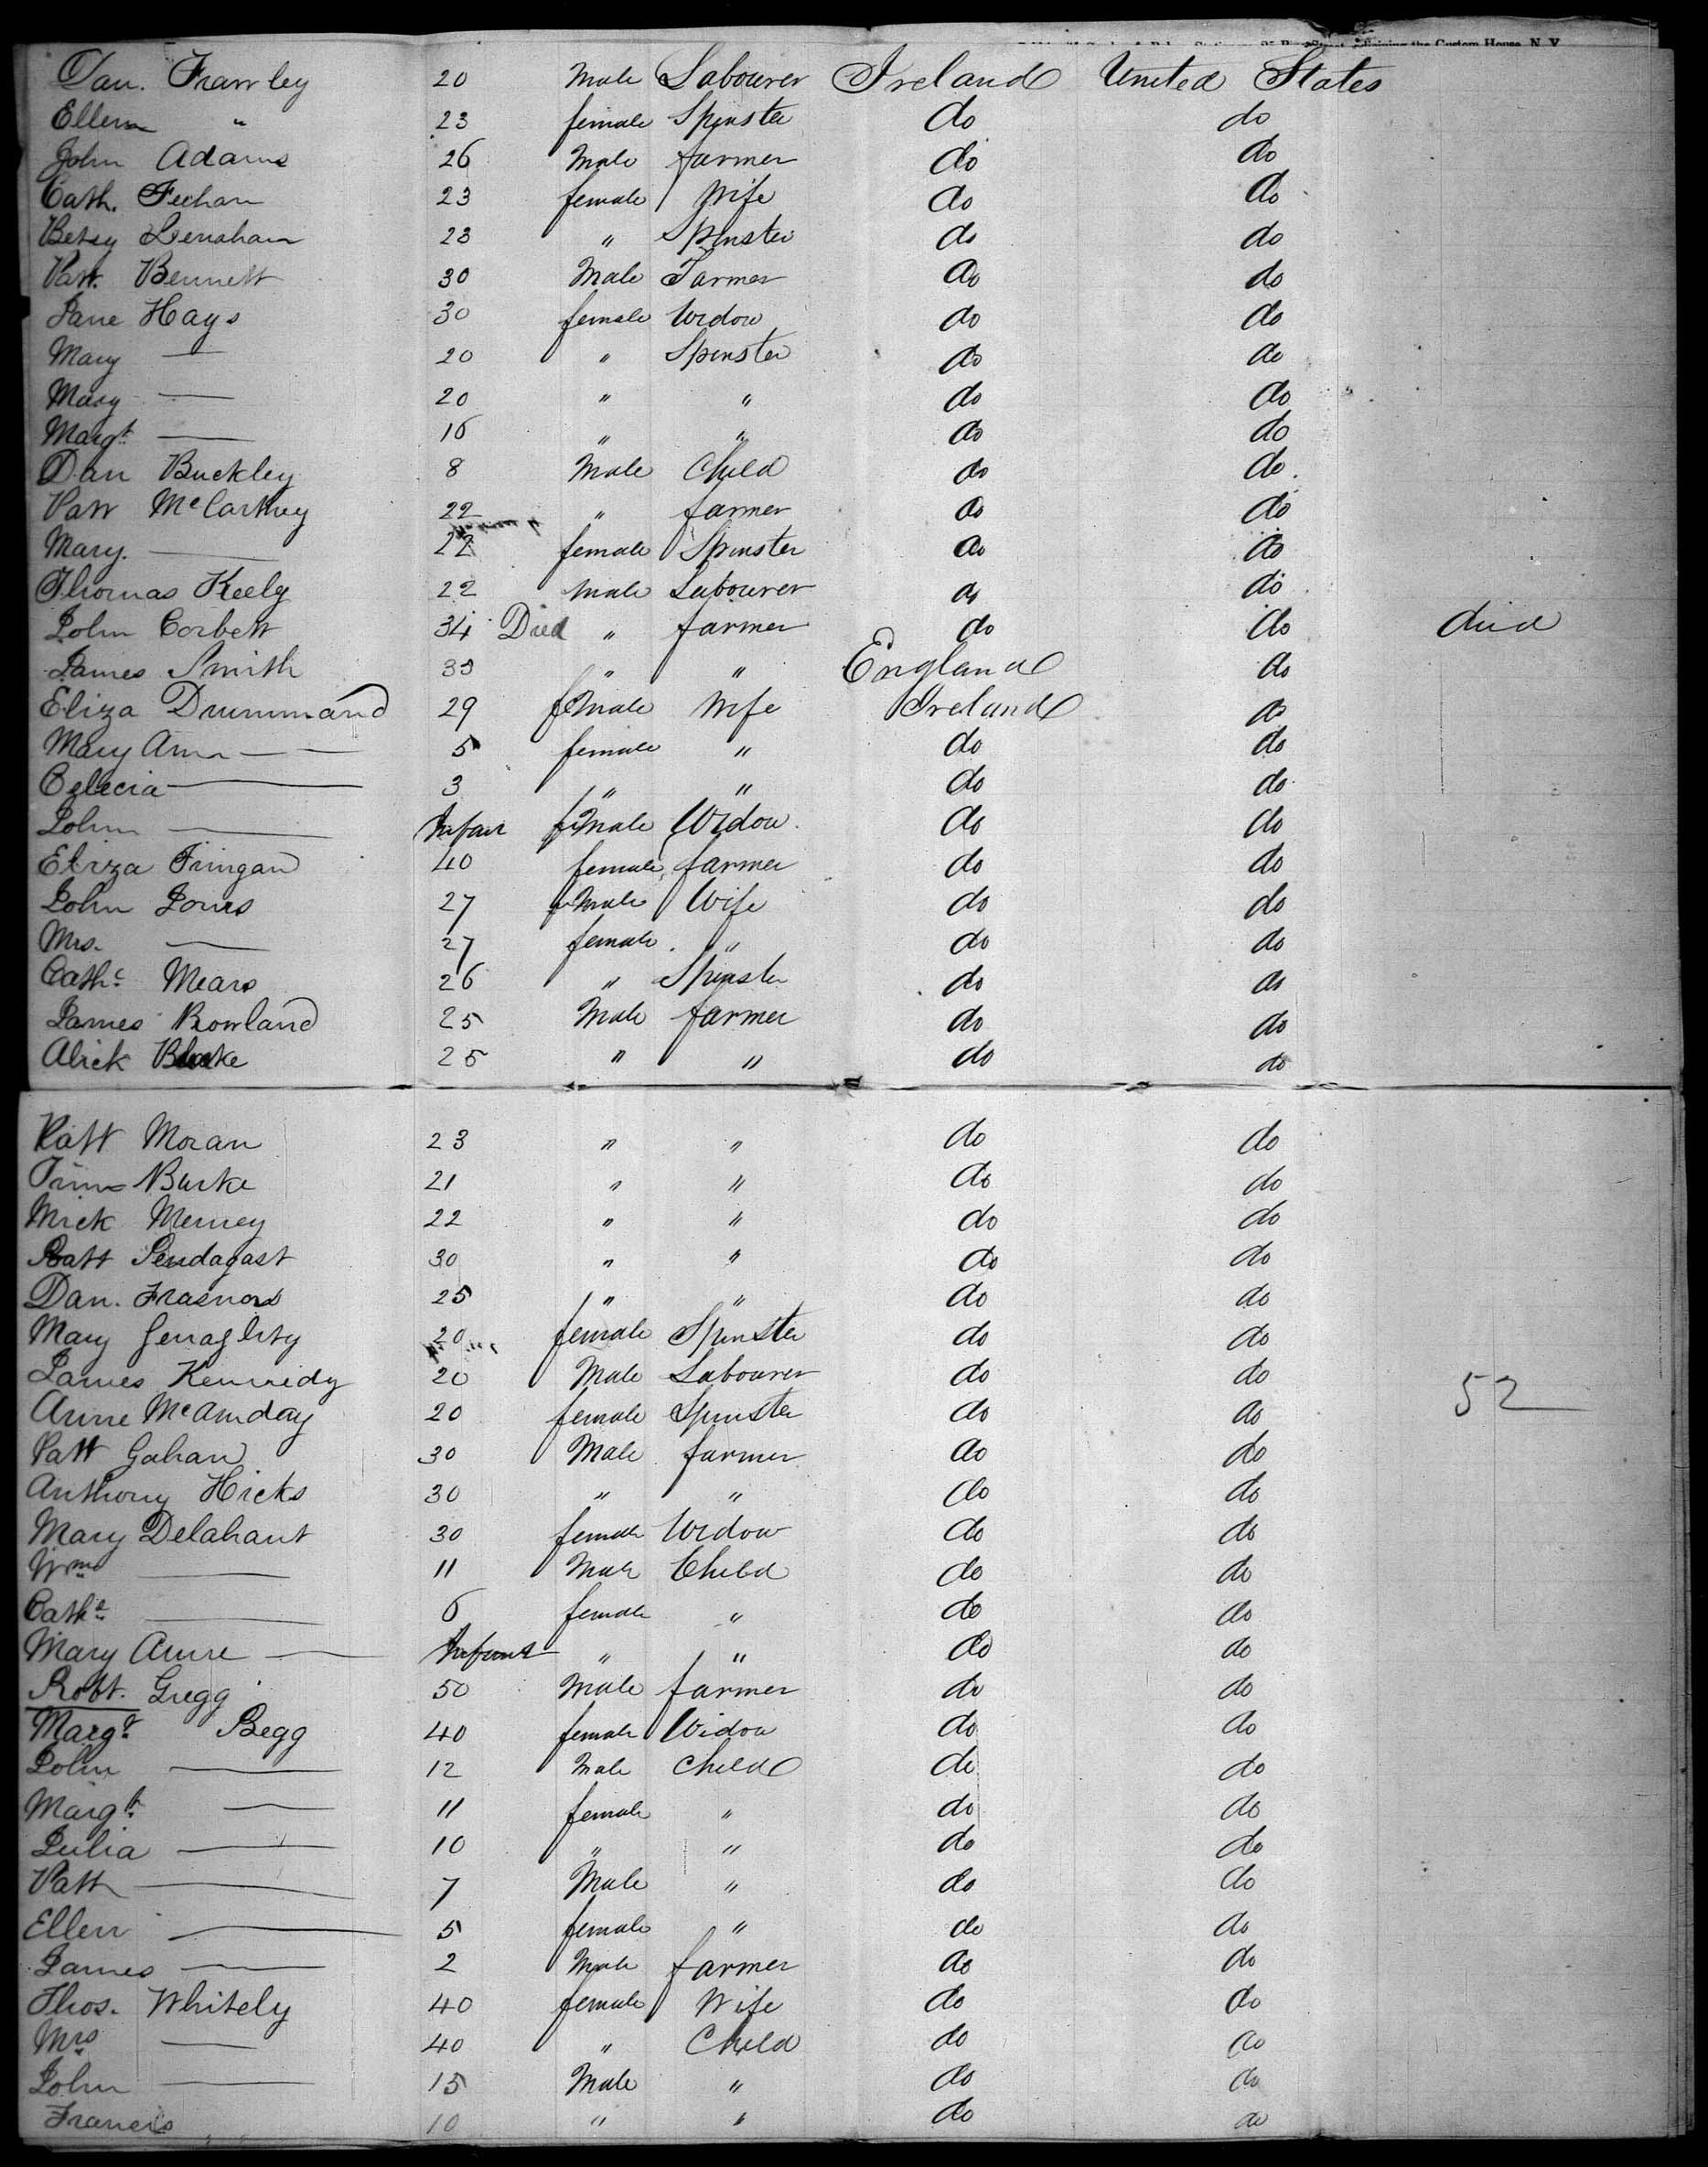 adjoining the Custom House, N. Y.
Dan. Frawley 20 Male Labourer Ireland United States
Ellen " 23 female Spinster do do
John Adams 26 Male farmer do do
Cath. Feehan 23 female Wife do do
Betsy Lenahan 23 " Spinster do do
Patt. Bennett 30 Male Farmer do do
Jane Hays 30 female Widow do do
Mary — 20 " Spinster do do
Mary — 20 " " do do
Margt. — 16 " " do do
Dan Buckley 8 Male Child do do
Patt McCarthy 22 " farmer do do
Mary. — 22 female Spinster do do
Thomas Keely 22 male Labourer do do
John Corbett 34 Died " farmer do do died
James Smith 33 " " England do
Eliza Drummand 29 female Wife Ireland do
Mary Ann — — 5 female " do do
Celecia — 3 " " do do
John — Infant Male Widow do do
Eliza Finigan 40 female farmer do do
John Jones 27 Male Wife do do
Mrs. — 27 female " do do
Cathe. Mears 26 " Spinster do do
James Rowland 25 Male farmer do do
Alick Burke 25 " " do do
Patt Moran 23 " " do do
Burke 21 " " do do
Mick Merney 22 " " do do
Patt Pendagast 30 " " do do
Dan. 25 " " do do
Mary Geraghty 20 female Spinster do do
James Kennedy 20 Male Labourer do do
52
Anne 20 female Spinster do do
Patt Gahan 30 Male farmer do do
Anthony Hicks 30 " " do do
Mary Delahant 30 female Widow do do
Wm — 11 Male Child do do
Cathe. — 6 female " do do
Mary Anne — Infant " " do do
Robt. Gregg 50 Male farmer do do
Margt. Begg 40 female Widow do do
John — 12 Male Child do do
Margt. — 11 female " do do
Julia — 10 " " do do
Patt — 7 Male " do do
Ellen — 5 female " do do
James — 2 Male farmer do do
Thos. Whitely 40 female Wife do do
Mrs — 40 " Child do do
John — 15 Male " do do
Francis 10 " " do do